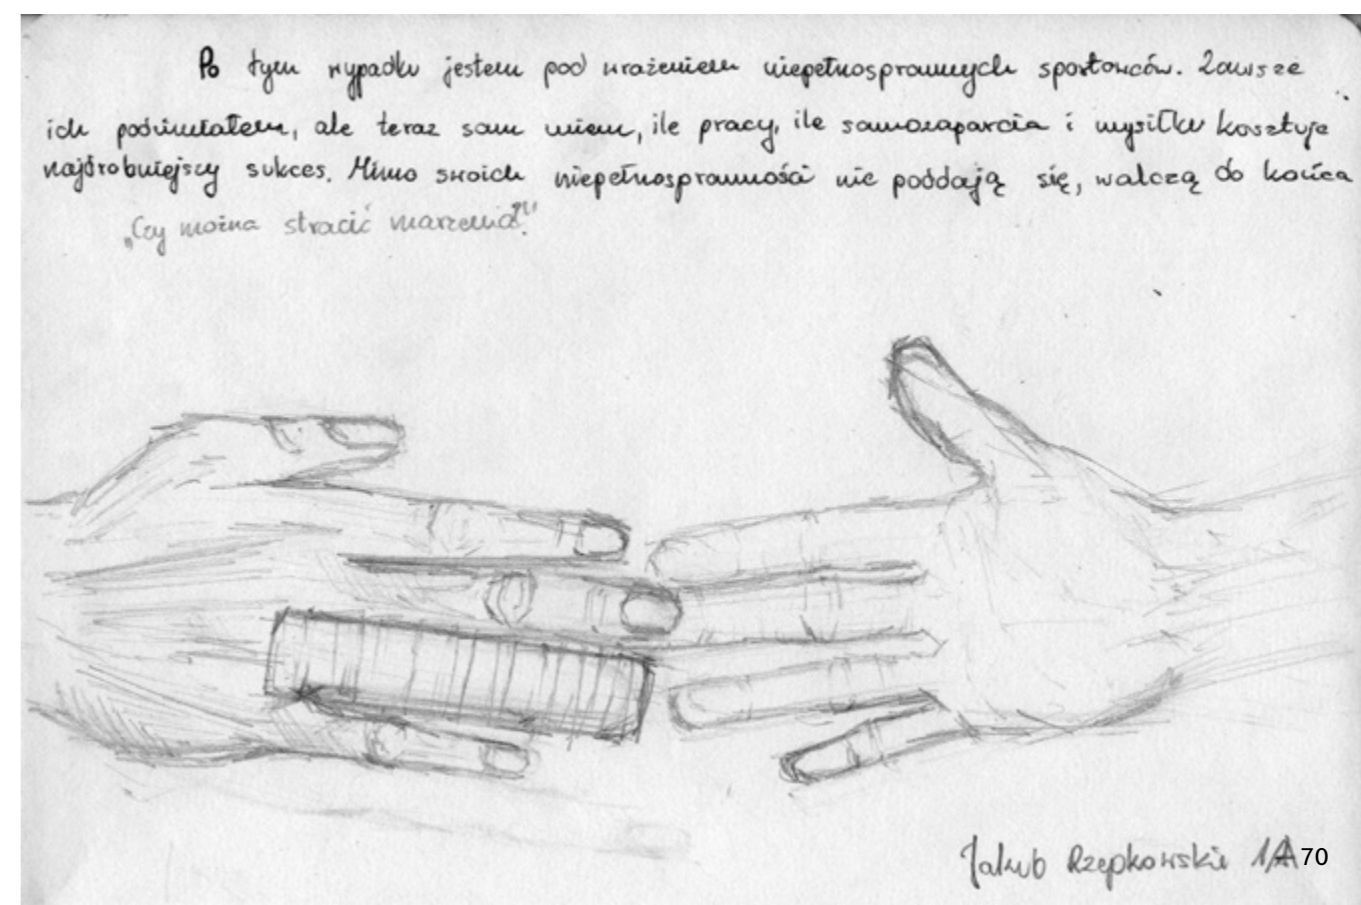 Po tym wypadku jestem pod wrażeniem niepełnosprawnych sportowców. Zawsze
ich podziwiałem, ale teraz sam wiem, ile pracy, ile samozaparcia i wysiłku kosztuje
najdrobniejszy sukces. Mimo swoich niepełnosprawności nie poddają się, walczą do końca
„Czy można stracić marzenia?"
Jakub Rzepkowski 1A 70